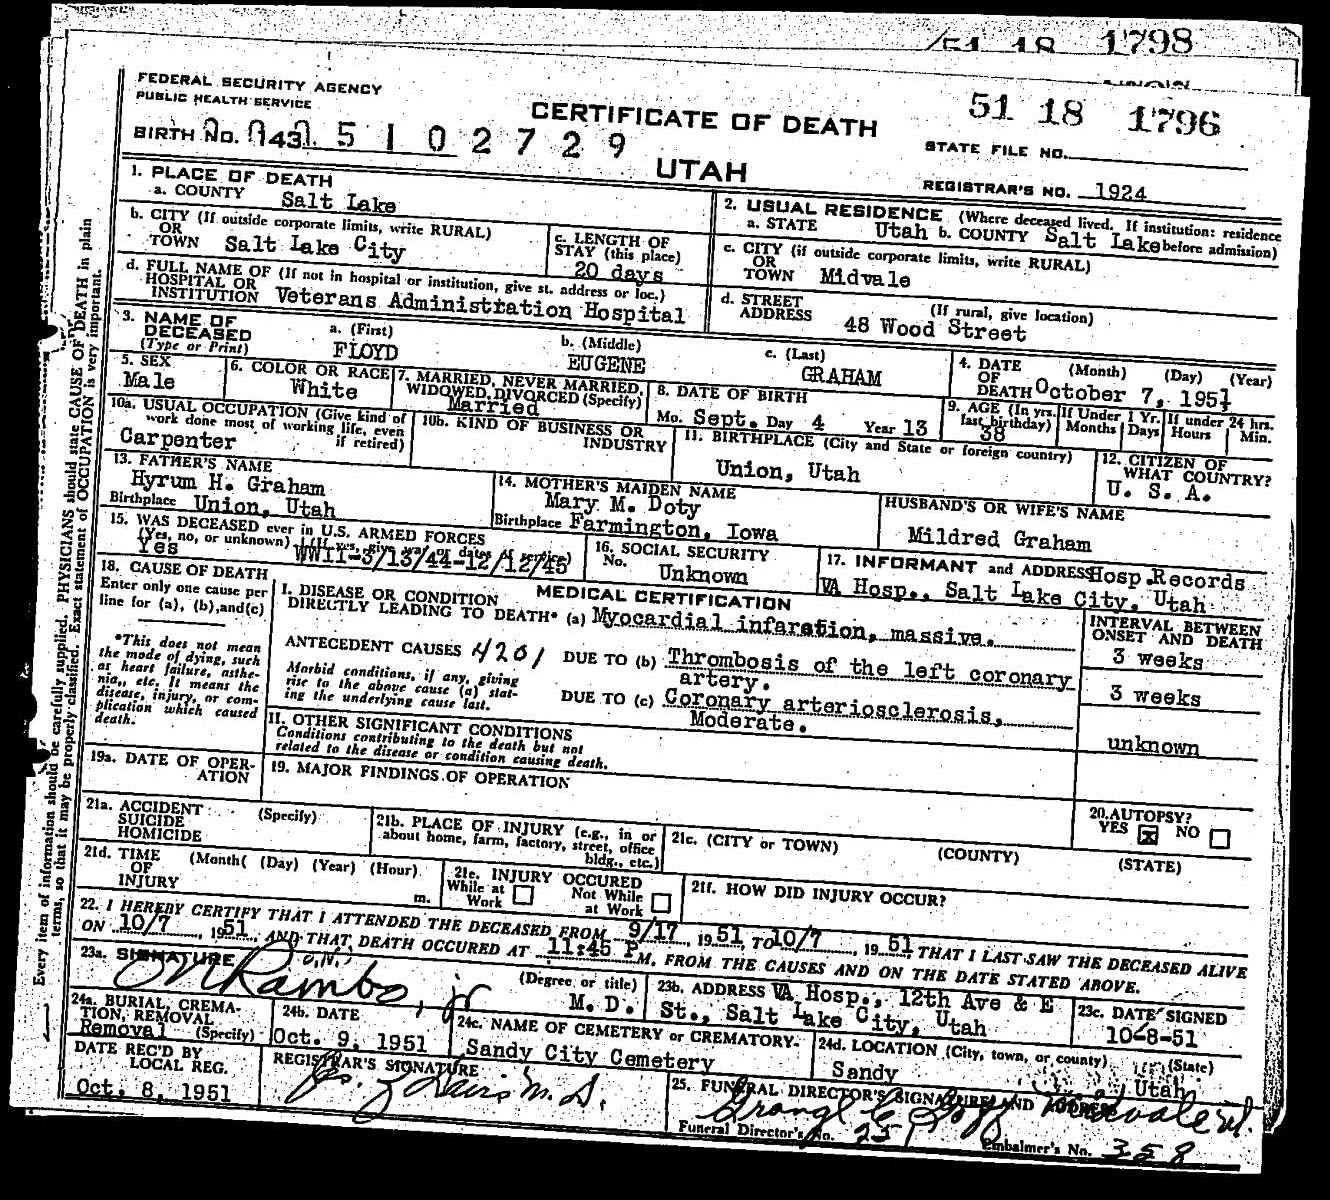 51 18 1798
FEDERAL SECURITY AGENCY
PUBLIC HEALTH SERVICE
CERTIFICATE OF DEATH
UTAH
51 18 1796
BIRTH NO. 143
5 1 0 2 7 2 9
STATE FILE NO.
REGISTRAR'S NO. 1924
1. PLACE OF DEATH
a. COUNTY Salt Lake
2. USUAL RESIDENCE (Where deceased lived. If institution: residence before admission)
a. STATE Utah b. COUNTY Salt Lake
b. CITY (If outside corporate limits, write RURAL)
OR
TOWN Salt Lake City
c. LENGTH OF
STAY (this place)
20 days
c. CITY (if outside corporate limits, write RURAL)
OR
TOWN Midvale
d. FULL NAME OF (If not in hospital or institution, give st. address or loc.)
HOSPITAL OR
INSTITUTION Veterans Administration Hospital
d. STREET (If rural, give location)
ADDRESS 48 Wood Street
3. NAME OF
DECEASED
(Type or Print)
a. (First)
FLOYD
b. (Middle)
EUGENE
c. (Last)
GRAHAM
4. DATE (Month) (Day) (Year)
OF
DEATH October 7, 1951
5. SEX
Male
6. COLOR OR RACE
White
7. MARRIED, NEVER MARRIED,
WIDOWED, DIVORCED (Specify)
Married
8. DATE OF BIRTH
Mo. Sept. Day 4 Year 13
9. AGE (In yrs.
last birthday)
38
If Under 1 Yr.
Months Days
If under 24 hrs.
Hours Min.
10a. USUAL OCCUPATION (Give kind of
work done most of working life, even
if retired)
Carpenter
10b. KIND OF BUSINESS OR
INDUSTRY
11. BIRTHPLACE (City and State or foreign country)
Union, Utah
12. CITIZEN OF
WHAT COUNTRY?
U. S. A.
13. FATHER'S NAME
Hyrum H. Graham
Birthplace Union, Utah
14. MOTHER'S MAIDEN NAME
Mary M. Doty
Birthplace Farmington, Iowa
HUSBAND'S OR WIFE'S NAME
Mildred Graham
15. WAS DECEASED ever in U.S. ARMED FORCES
(Yes, no, or unknown) (If yes, give war or dates of service)
Yes WWII-3/13/44-12/12/45
16. SOCIAL SECURITY
No. Unknown
17. INFORMANT and ADDRESS Hosp. Records
VA Hosp., Salt Lake City, Utah
18. CAUSE OF DEATH
Enter only one cause per
line for (a), (b), and (c)
*This does not mean
the mode of dying, such
as heart failure, asthe-
nia, etc. It means the
disease, injury, or com-
plication which caused
death.
MEDICAL CERTIFICATION
I. DISEASE OR CONDITION
DIRECTLY LEADING TO DEATH* (a) Myocardial infarction, massive.
ANTECEDENT CAUSES 4201 DUE TO (b) Thrombosis of the left coronary
artery.
Morbid conditions, if any, giving
rise to the above cause (a) stat-
ing the underlying cause last.
DUE TO (c) Coronary arteriosclerosis,
Moderate.
INTERVAL BETWEEN
ONSET AND DEATH
3 weeks
3 weeks
unknown
II. OTHER SIGNIFICANT CONDITIONS
Conditions contributing to the death but not
related to the disease or condition causing death.
19a. DATE OF OPER-
ATION
19. MAJOR FINDINGS OF OPERATION
20. AUTOPSY?
YES x NO
21a. ACCIDENT (Specify)
SUICIDE
HOMICIDE
21b. PLACE OF INJURY (e.g., in or
about home, farm, factory, street, office
bldg., etc.)
21c. (CITY or TOWN) (COUNTY) (STATE)
21d. TIME (Month( (Day) (Year) (Hour)
OF
INJURY m.
21e. INJURY OCCURED
While at
Work
Not While
at Work
21f. HOW DID INJURY OCCUR?
22. I HEREBY CERTIFY THAT I ATTENDED THE DECEASED FROM 9/17, 1951, TO 10/7, 1951, THAT I LAST SAW THE DECEASED ALIVE
ON 10/7, 1951, AND THAT DEATH OCCURED AT 11:45 P M, FROM THE CAUSES AND ON THE DATE STATED ABOVE.
23a. SIGNATURE
ON Rambo, jr
O.N.
(Degree or title)
M. D.
23b. ADDRESS VA Hosp., 12th Ave & E
St., Salt Lake City, Utah
23c. DATE SIGNED
10-8-51
24a. BURIAL, CREMA-
TION, REMOVAL
Removal (Specify)
24b. DATE
Oct. 9, 1951
24c. NAME OF CEMETERY or CREMATORY
Sandy City Cemetery
24d. LOCATION (City, town, or county) (State)
Sandy Utah
DATE REC'D BY
LOCAL REG.
Oct. 8, 1951
REGISTRAR'S SIGNATURE
M. D.
25. FUNERAL DIRECTOR'S SIGNATURE AND ADDRESS
Goff Midvale Ut.
Funeral Director's No. 251
Embalmer's No. 358
Every item of information should be carefully supplied. PHYSICIANS should state CAUSE OF DEATH in plain
terms, so that it may be properly classified. Exact statement of OCCUPATION is very important.